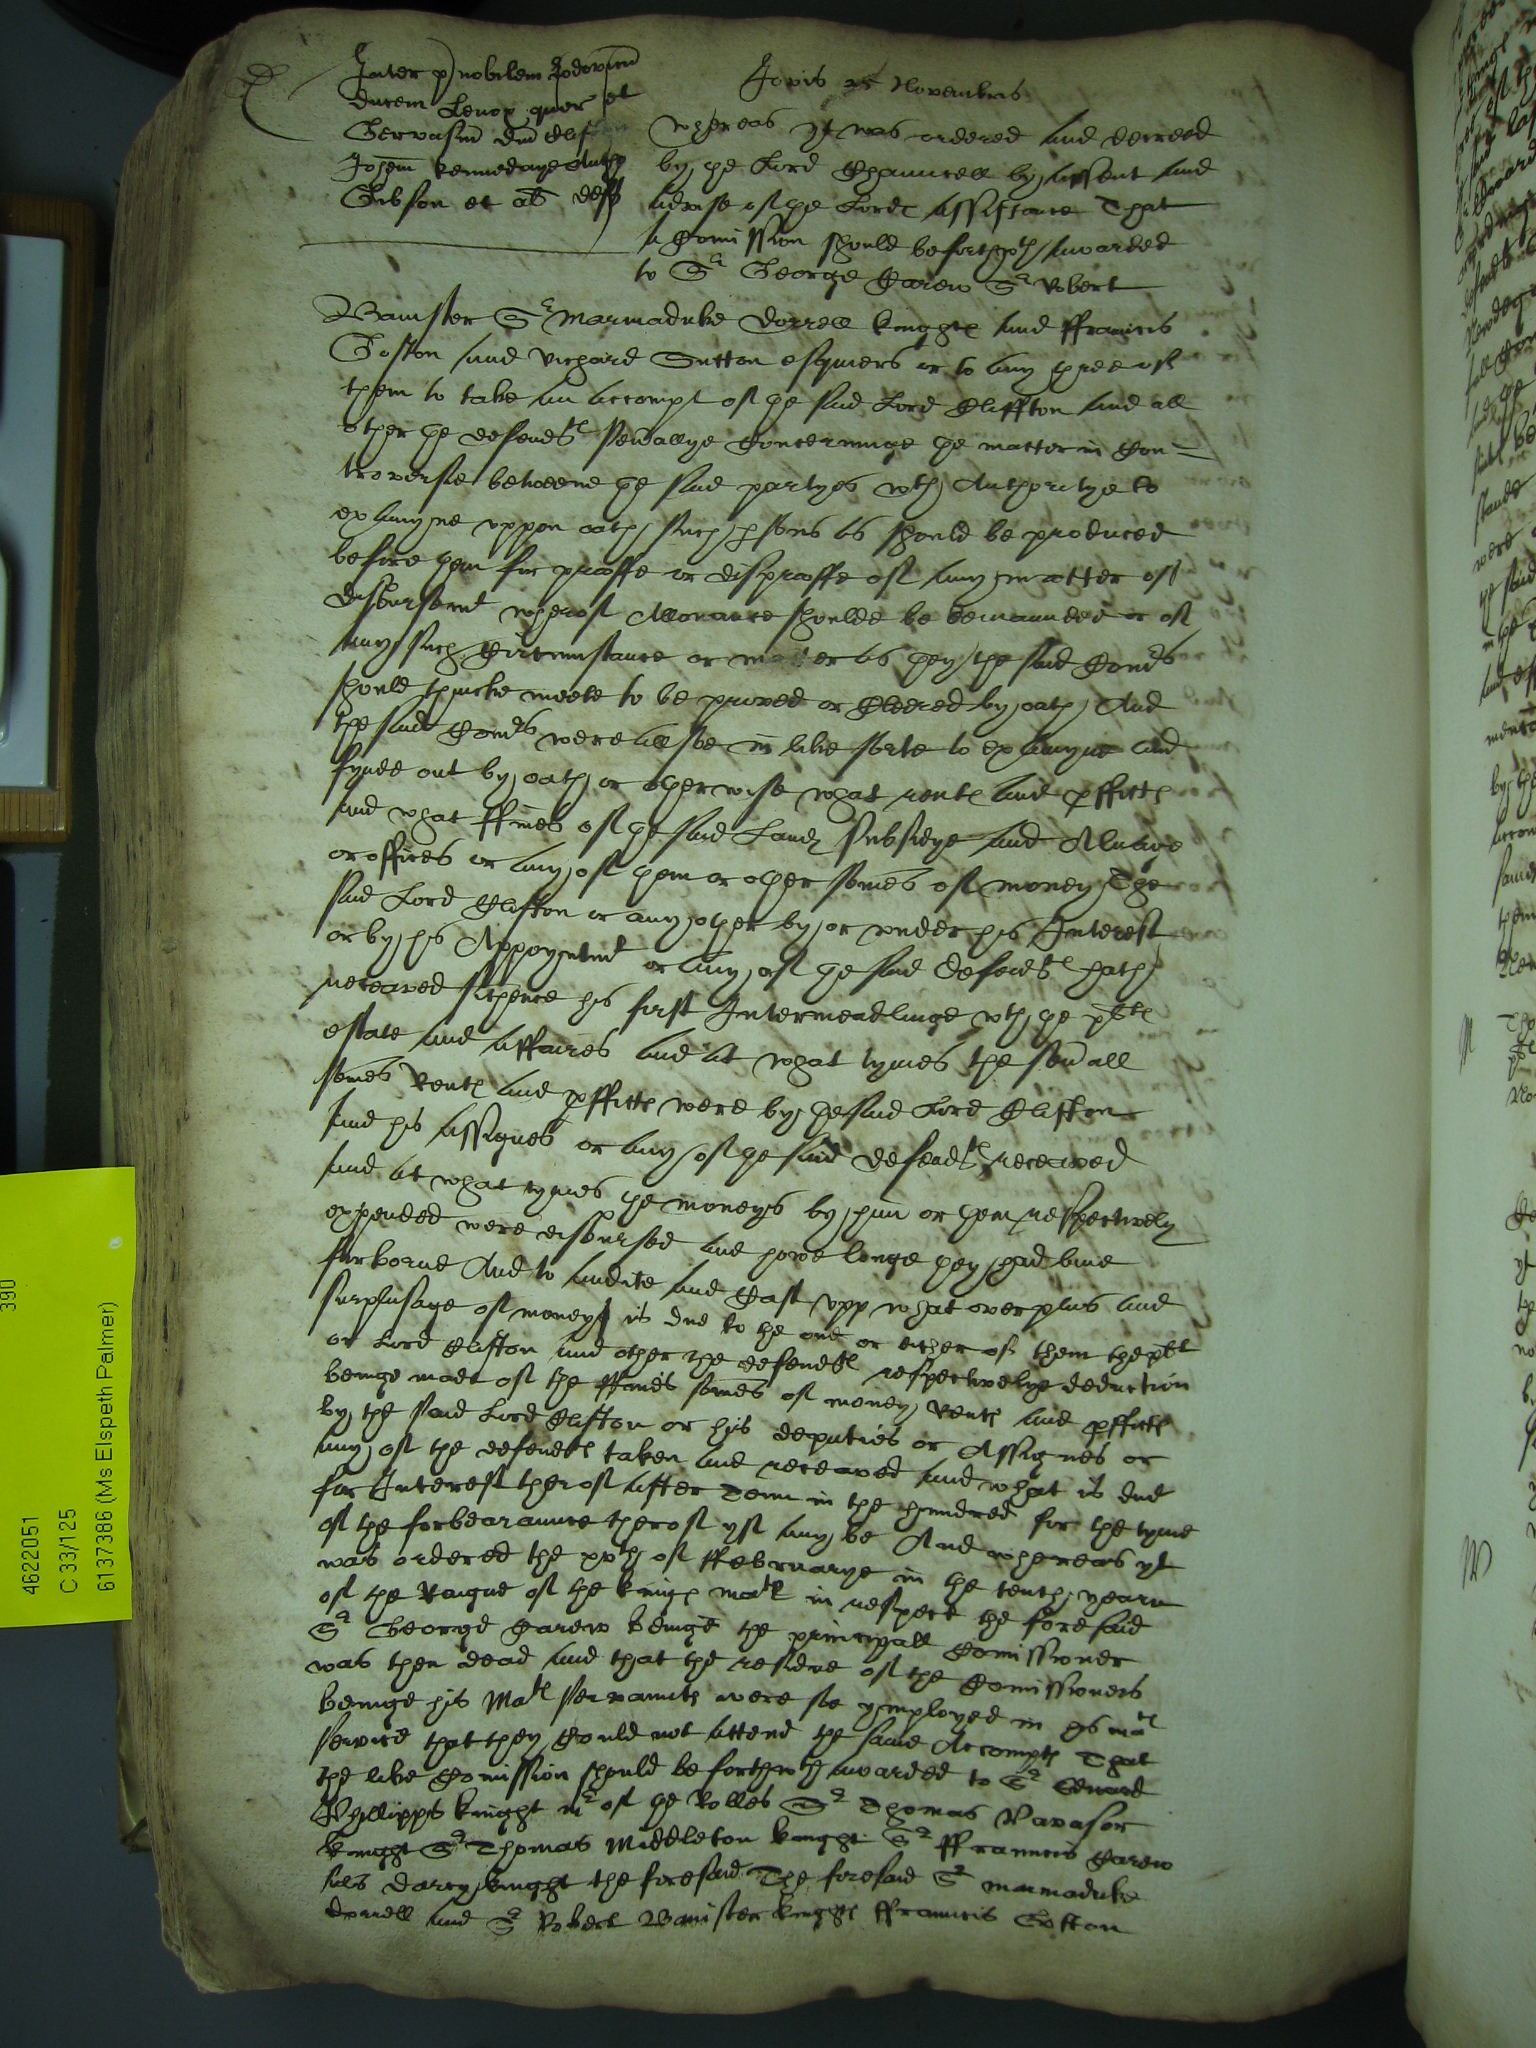 Inter p nobilem Lodovicu
ducem Lenox quer et
Gervasiu dnu Clifton
Johem Kennedaye Anth
Gibson et al defts
Jovis 25 Novembris
Whereas yt was ordered and decreed
by the Lord Chauncell by assent and
advise of the Lordes assistance That
a Comission should be forthwth awarded
to Sr George Carew Sr Robert
Banister Sr Marmaduke Dorrell knights and ffrancis
Gofton and Richard Sutton esquiers or to any three of
them to take an accompt of the said Lord Cliffton and all
other the defendts severallye Concerninge the matter in Con=
troversie betweene the said partyes wth Authoritye to
examyne uppon oath such psons as should be produced
before them for prooffe or disprooffe of any matter of
disbursemt wherof Allowance shoulde be demaunded or of
any such Circumstance or matter as they the said Comrs
should thincke meete to be proved or Cleered by oath And
the said Comrs were allsoe in like sorte to examyne and
fynde out by oath or otherwise what rentes and pffittes
and what ffines of the said Landes Subsidye and Alnage
or offices or any of them or other somes of money The
said Lord Clifton or any other by or under his Interest
or by his Appoyntmt or any of the said defendts hath
receaved sithence his first Intermeadlinge wth the pltes
estate and affaires and at what tymes the severall
somes Rentes and pffittes were by the said Lord Clifton
and his assignes or any of the said defendts receaved
and at what tymes the moneys by him or them respectively
expended were disbursed and howe longe they had bine
forborne And to audite and Cast upp what overplus and
surplusage of moneys is due to the one or either of them the plt
or Lord Clifton and other the defendtes respectivelye deduction
beinge made of the ffines somes of money Rentes and pffittes
by the said Lord Clifton or his deputies or Assignes or
any of the defendtes taken and receaved and what is due
for Interest therof after Tenn in the hundred for the tyme
of the forbearaunce therof yf any be And whereas yt
was ordered the xxth of ffebruarye in the tenth yeare
of the Raigne of the kinges matie in respect the foresaid
Sr George Carew beinge the principall Comissioner
was then dead and that the residue of the Comissioners
beinge his Mates servauntes were soe ymployed in his mates
service that they Could not attend the same Accomptes That
the like Comission should be forthwth awarded to Sr Edward
Phillipps knight mr of the Rolles Sr Thomas Vavasor
knight Sr Thomas Middleton knight Sr ffrauncis Carew
als Darcy knight the foresaid The foresaid Sr Marmaduke
Dorrell and Sr Robert Banister knights ffrauncis Gofton
390
4622051
C 33/125
6137386 (Ms Elspeth Palmer)